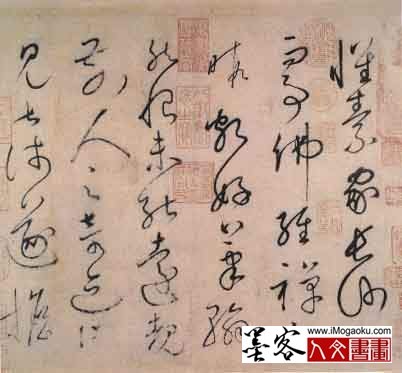 懷素家長沙
幼而事佛經禪
之暇頗好筆翰
然恨未能遠覩
前人之奇迹所
見甚淺遂擔
墨客
www.iMogaoku.com
人文書畫